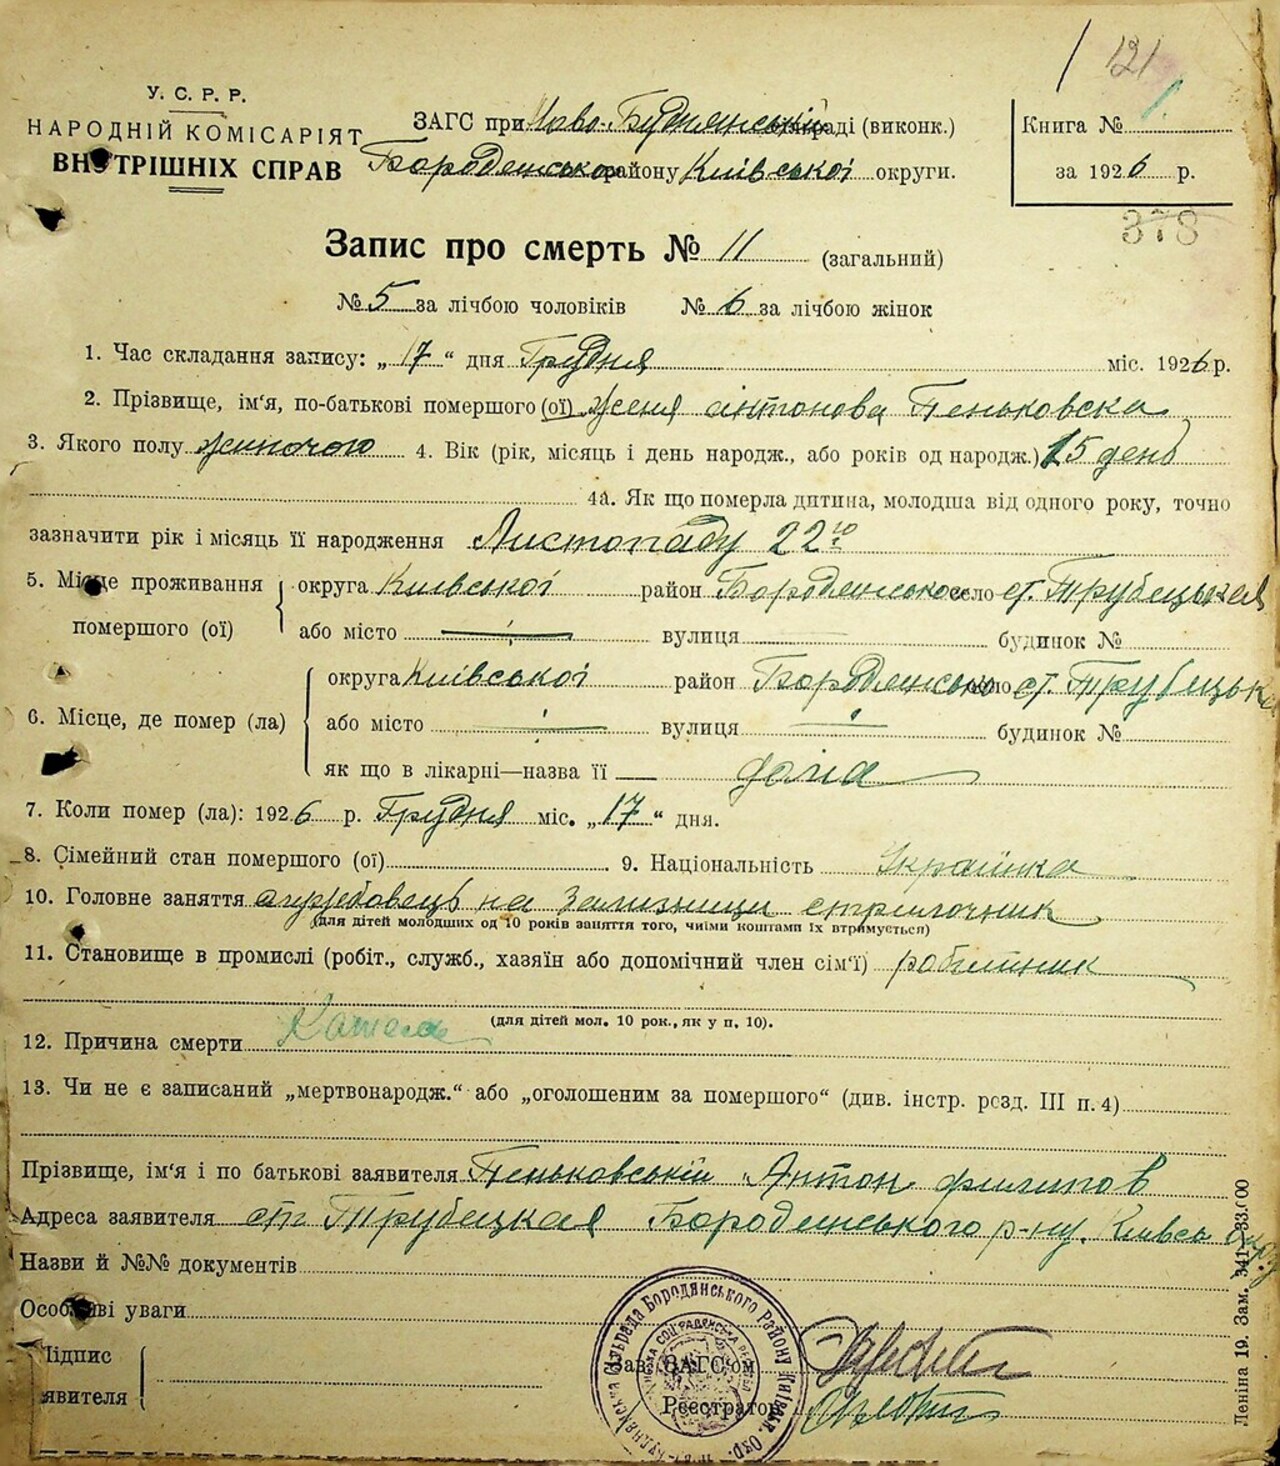 121
У. С. Р. Р.
НАРОДНІЙ КОМІСАРІЯТ
ВНУТРІШНІХ СПРАВ
ЗАГС при Ново-Буднянській раді (виконк.)
Бороденського району Київської округи.
Книга № 1
за 1926 р.
378
Запис про смерть № 11 (загальний)
№ 5 за лічбою чоловіків № 6 за лічбою жінок
1. Час складання запису: „17“ дня Грудня міс. 1926 р.
2. Прізвище, ім‘я, по-батькові помершого (ої) Женя антонова Пеньковска
3. Якого полу жиночого 4. Вік (рік, місяць і день народж., або років од народж.) 25 день
4а. Як що померла дитина, молодша від одного року, точно
зазначити рік і місяць її народження Листопаду 22го
5. Місце проживання помершого (ої)
округа Київської район Бороденсько село ст. Трубецькая
або місто вулиця будинок №
6. Місце, де помер (ла)
округа Київської район Бороденсько село ст. Трубецька
або місто вулиця будинок №
як що в лікарні—назва її — дома
7. Коли помер (ла): 1926 р. Грудня міс. „17“ дня.
8. Сімейний стан помершого (ої) 9. Національність Українка
10. Головне заняття на Зализници стрилочник
(для дітей молодших од 10 років заняття того, чиїми коштами їх втримується)
11. Становище в промислі (робіт., служб., хазяїн або допомічний член сім‘ї) робитник
(для дітей мол. 10 рок., як у п. 10).
12. Причина смерти Кашель
13. Чи не є записаний „мертвонародж.“ або „оголошеним за помершого“ (див. інстр. розд. III п. 4)
Прізвище, ім‘я і по батькові заявителя Пеньковській Антон филипов
Адреса заявителя ст Трубецкая Бородянського р-ну. Київсь Окр
Назви й №№ документів
Особливі уваги
Підпис
явителя
Зав. ЗАГС‘ом
Реєстратор
Сільрада Бородянського Району Київськ. Окр.
Леніна 19. Зам. 341—33.000